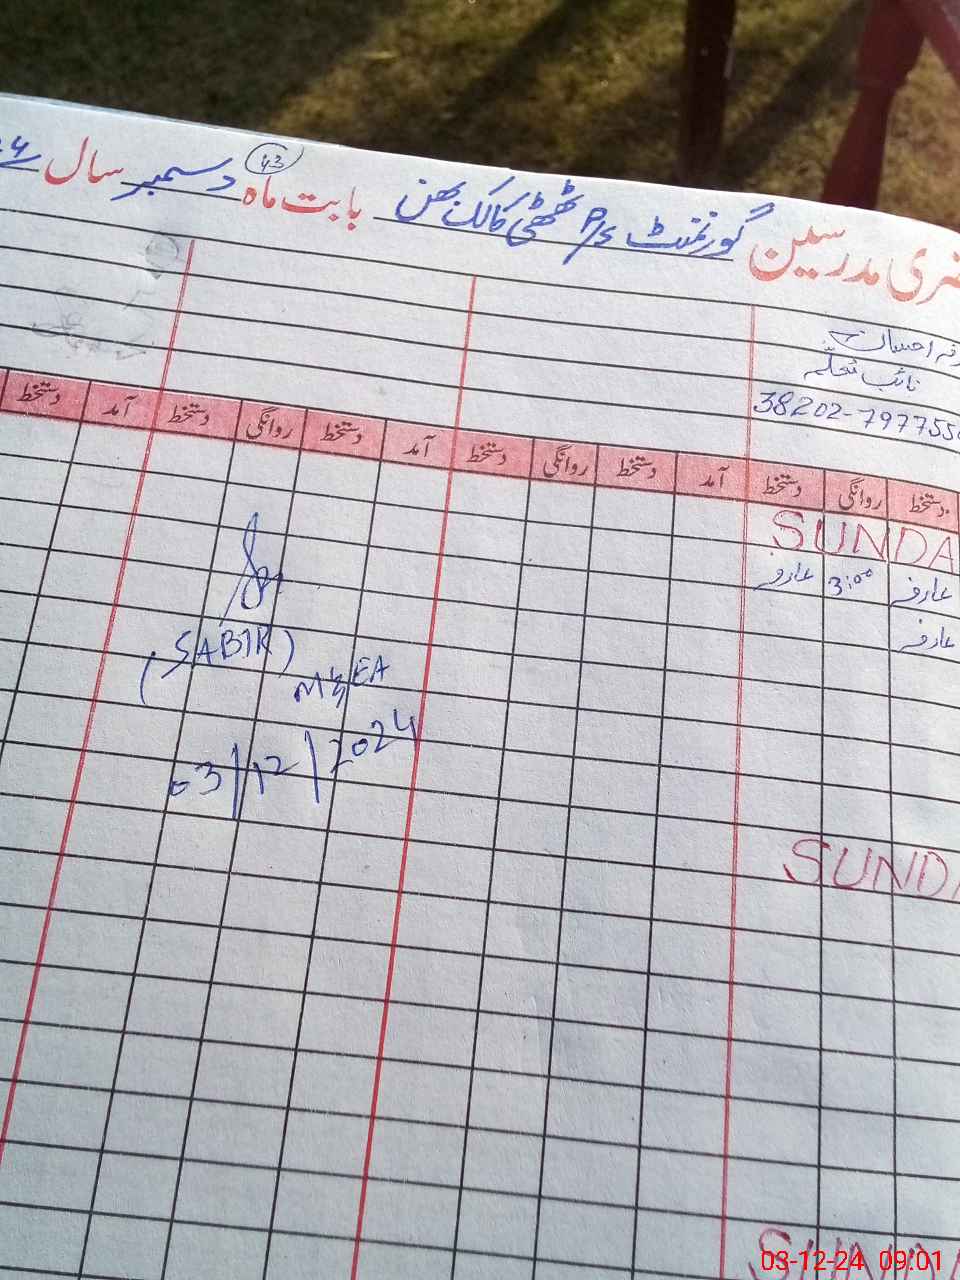 مدرسین گورنمنٹ P/S ٹھٹھی کالک بھن بابت ماہ دسمبر سال
43
احسان
نائب معلمہ
38202-797755
دستخط روانگی دستخط آمد دستخط روانگی دستخط آمد دستخط روانگی دستخط آمد دستخط
SUNDA
عارفہ 3:00 عارفہ
عارفہ
(SABIR)
M&EA
03/12/2024
SUND
SUND
03-12-24 09:01